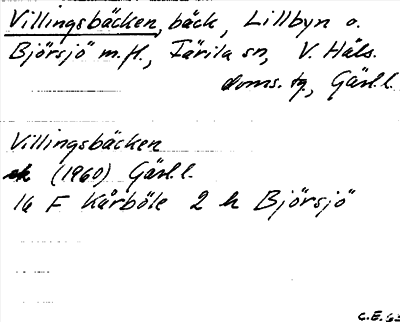 Villingsbäcken, bäck, Lillbyn o.
Björsjö m.fl., Färila sn, V. Häls.
doms. tg, Gävl.l.
Villingsbäcken
ek (1960) Gävl.l.
16 F Kårböle 2 h Björsjö
C.E. 63